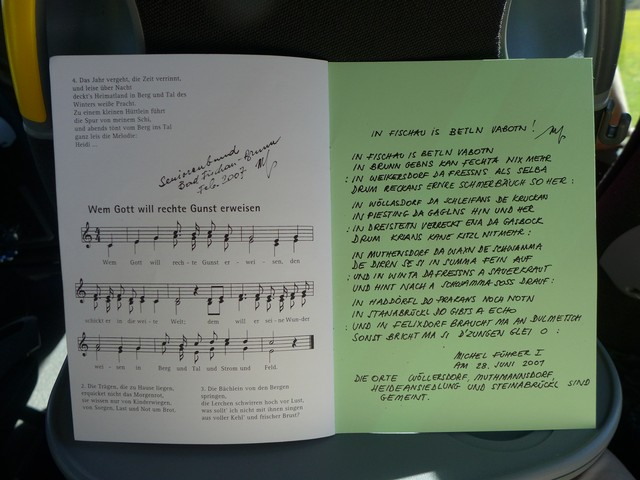 4. Das Jahr vergeht, die Zeit verrinnt,
und leise über Nacht
deckt's Heimatland in Berg und Tal des
Winters weiße Pracht.
Zu einem kleinen Hüttlein führt
die Spur von meinem Schi,
und abends tönt vom Berg ins Tal
ganz leis die Melodie:
Heidi ...
Seniorenbund
Bad Fischau-Brunn
Feb. 2007
Wem Gott will rechte Gunst erweisen
Wem Gott will rech - te Gunst er - wei - sen, den
schickt er in die wei - te Welt; dem will er sei - ne Wun - der
wei - sen in Berg und Tal und Strom und Feld.
2. Die Trägen, die zu Hause liegen,
erquicket nicht das Morgenrot,
sie wissen nur von Kinderwiegen,
von Sorgen, Last und Not um Brot.
3. Die Bächlein von den Bergen
springen,
die Lerchen schwirren hoch vor Lust,
was sollt' ich nicht mit ihnen singen
aus voller Kehl' und frischer Brust?
IN FISCHAU IS BETLN VABOTN!
IN FISCHAU IS BETLN VABOTN
IN BRUNN GEBNS KAN FECHTA NIX MEHR
: IN WEIKERSDORF DA FRESSNS ALS SELBA
DRUM RECKANS ERNRE SCHMERBÄUCH SO HER :
IN WÖLLASDORF DA SCHLEIFANS DE KRUCKAN
IN PIESTING DA GAGLNS HIN UND HER
: IN DREISTETN VERRECKT ENA DA GASBOCK
DRUM KRIANS KANE KITZL NITMEHR :
IN MUTHENSDORF DA WAXN DE SCHWAMMA
DE DIRRN SE SI IN SUMMA FEIN AUF
: UND IN WINTA DA FRESSNS A SAUERKRAUT
UND HINT NACH A SCHWAMMA SOSS DRAUF :
IN HADDÖRFL DO PRAKAHS NOCH NOTN
IN STANABRÜCKL DO GIBTS A ECHO
: UND IN FELIXDORF BRAUCHT MA AN DULMETSCH
SONST BRICHT MA SI D'ZUNGEN GLEI O :
MICHEL FÜHRER I
AM 28. JUNI 2007
DIE ORTE WÖLLERSDORF, MUTHMANNSDORF,
HEIDEANSIEDLUNG UND STEINABRÜCKL SIND
GEMEINT.